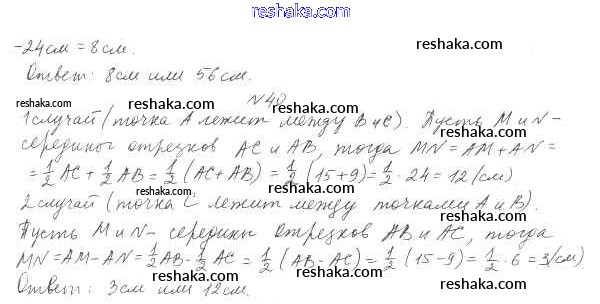 reshaka.com
-24см = 8см.
reshaka.com
Ответ: 8см или 56см.
reshaka.com
reshaka.com
1 случай (точка A лежит между B и C). Пусть M и N -
reshaka.com
середины отрезков AC и AB, тогда MN = AM + AN =
= 1/2 AC + 1/2 AB = 1/2 (AC + AB) = 1/2 (15 + 9) = 1/2 · 24 = 12 (см)
reshaka.com
reshaka.com
2 случай (точка C лежит между точками A и B).
reshaka.com
Пусть M и N - середины отрезков AB и AC, тогда
reshaka.com
reshaka.com
MN = AM - AN = 1/2 AB - 1/2 AC = 1/2 (AB - AC) = 1/2 (15 - 9) = 1/2 · 6 = 3 (см)
Ответ: 3см или 12см.
reshaka.com
reshaka.com